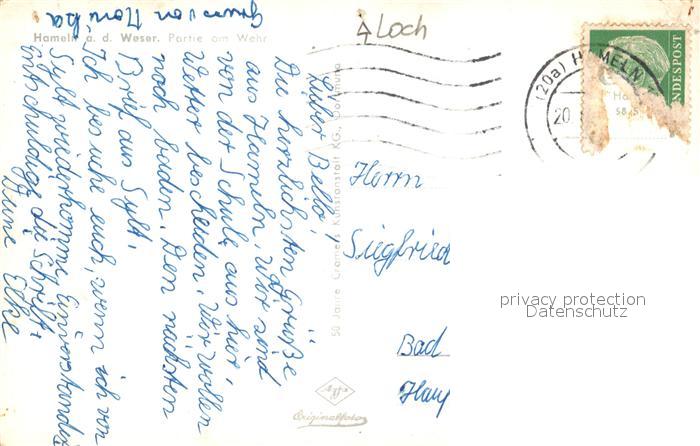 Hameln a. d. Weser. Partie am Wehr
Gruss von Monika
Lieber Bello!
Die herzlichsten Grüße
aus Hameln. Wir sind
von der Schule aus hier.
Wetter bescheiden. Wir wollen
noch baden. Den nächsten
Brief aus Sylt.
Ich besuche euch, wenn ich von
Sylt wiederkomme. Einverstanden?
Entschuldige die Schrift.
Deine Elke
50 Jahre Cramers Kunstanstalt KG., Dortmund
4 Loch
(20a) HAMELN
20
NDESPOST
Herrn
Siegfried
privacy protection
Datenschutz
Bad
Harz
Agfa
Originalfoto